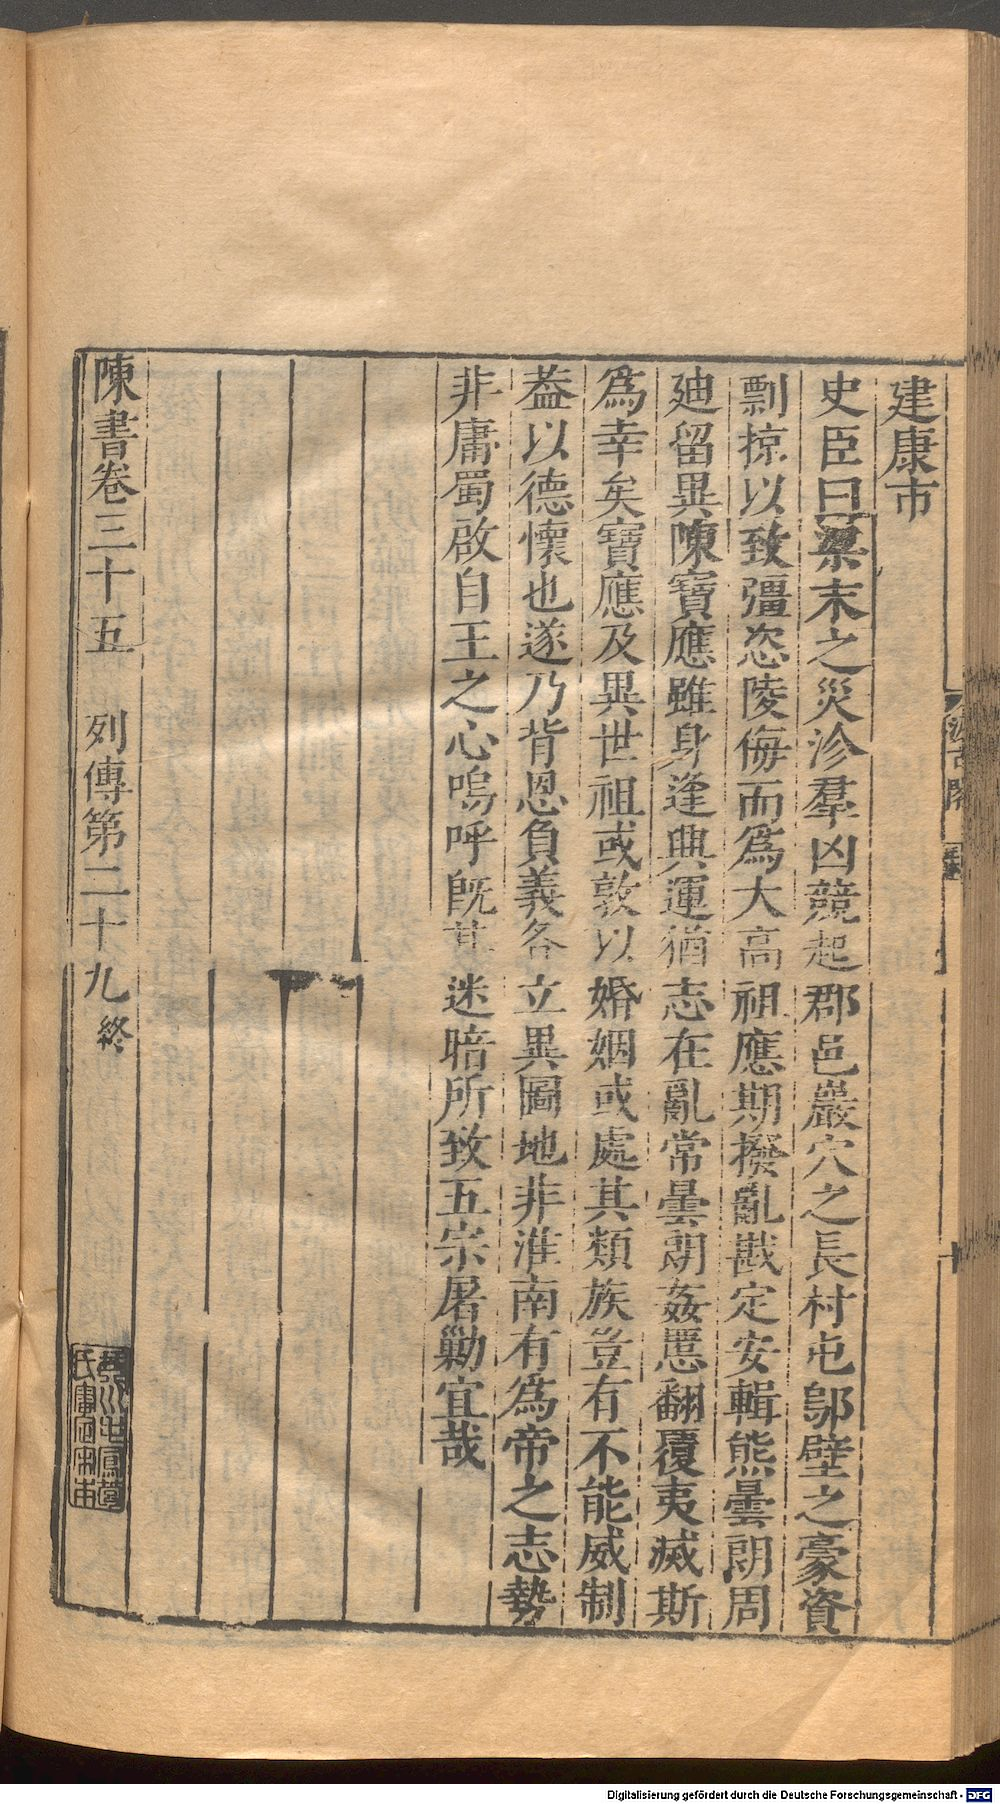 建康市
史臣曰梁末之災沴羣凶競起郡邑巖穴之長村屯鄔壁之豪資
剽掠以致彊恣陵侮而爲大高祖應期撥亂戡定安輯熊曇朗周
迪留異陳寶應雖身逢興運猶志在亂常曇朗姦慝翻覆夷滅斯
爲幸矣寶應及異世祖或敦以婚姻或處其類族豈有不能威制
葢以德懷也遂乃背恩負義各立異圖地非淮南有爲帝之志勢
非庸蜀啟自王之心嗚呼旣其迷暗所致五宗屠勦宜哉
陳書卷三十五 列傳第二十九終
汲古閣
Digitalisierung gefördert durch die Deutsche Forschungsgemeinschaft - DFG